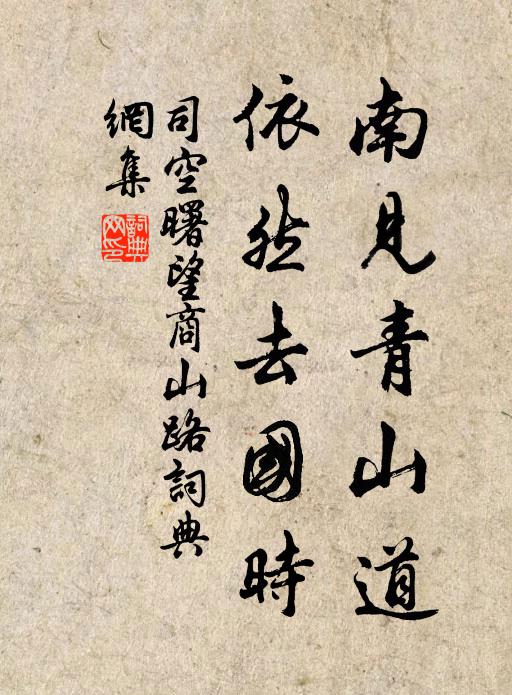 南見青山道
依然去國時
司空曙望商山路詞典
網集
詞典網印